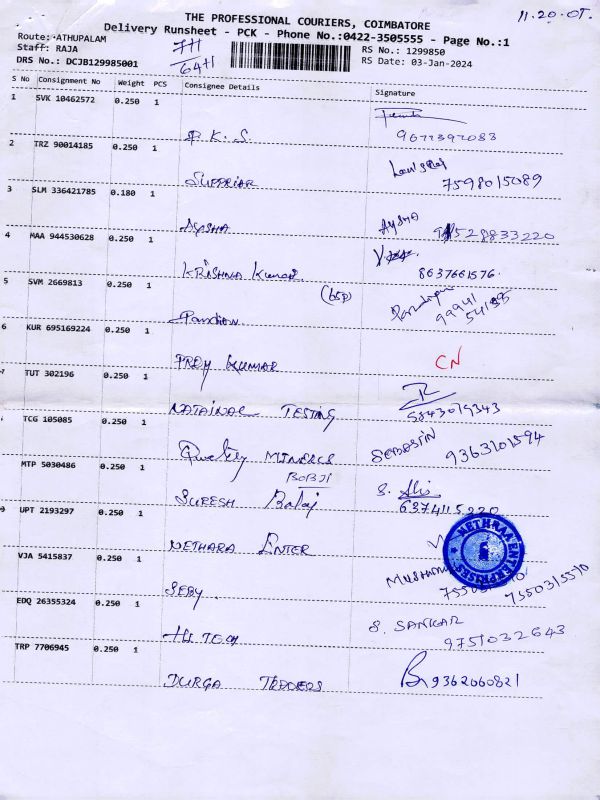 11.20.07.
THE PROFESSIONAL COURIERS, COIMBATORE
Delivery Runsheet - PCK - Phone No.:0422-3505555 - Page No.:1
Route: ATHUPALAM
Staff: RAJA
DRS No.: DCJB129985001
7H
64H
RS No.: 1299850
RS Date: 03-Jan-2024
S No Consignment No Weight PCS Consignee Details Signature
1 SVK 10462572 0.250 1
R.K.S. 9677392083
2 TRZ 90014185 0.250 1
SUPPRIAR 7598015089
3 SLM 336421785 0.180 1
AYSHA AYSHA 9528833220
4 MAA 944530628 0.250 1
KRISHNA Kumar 8637661576.
5 SVM 2669813 0.250 1
(bsp)
Pandian 99941
54135
6 KUR 695169224 0.250 1
PREM KUMAR CN
7 TUT 302196 0.250 1
NATAINAL TESTING 5843079343
TCG 105085 0.250 1
MINERLS SEBASTIN 9363101594
MTP 5030486 0.250 1
BOBJI
SURESH Balaj S. 6374115220
9 UPT 2193297 0.250 1
METHARA ENTER
METHRAA ENTERPRISES
VJA 5415837 0.250 1
SEBY. 7550315510
EDQ 26355324 0.250 1
HI TECH S. SANKAR
9751032643
TRP 7706945 0.250 1
DURGA TRDDERS 9362060821